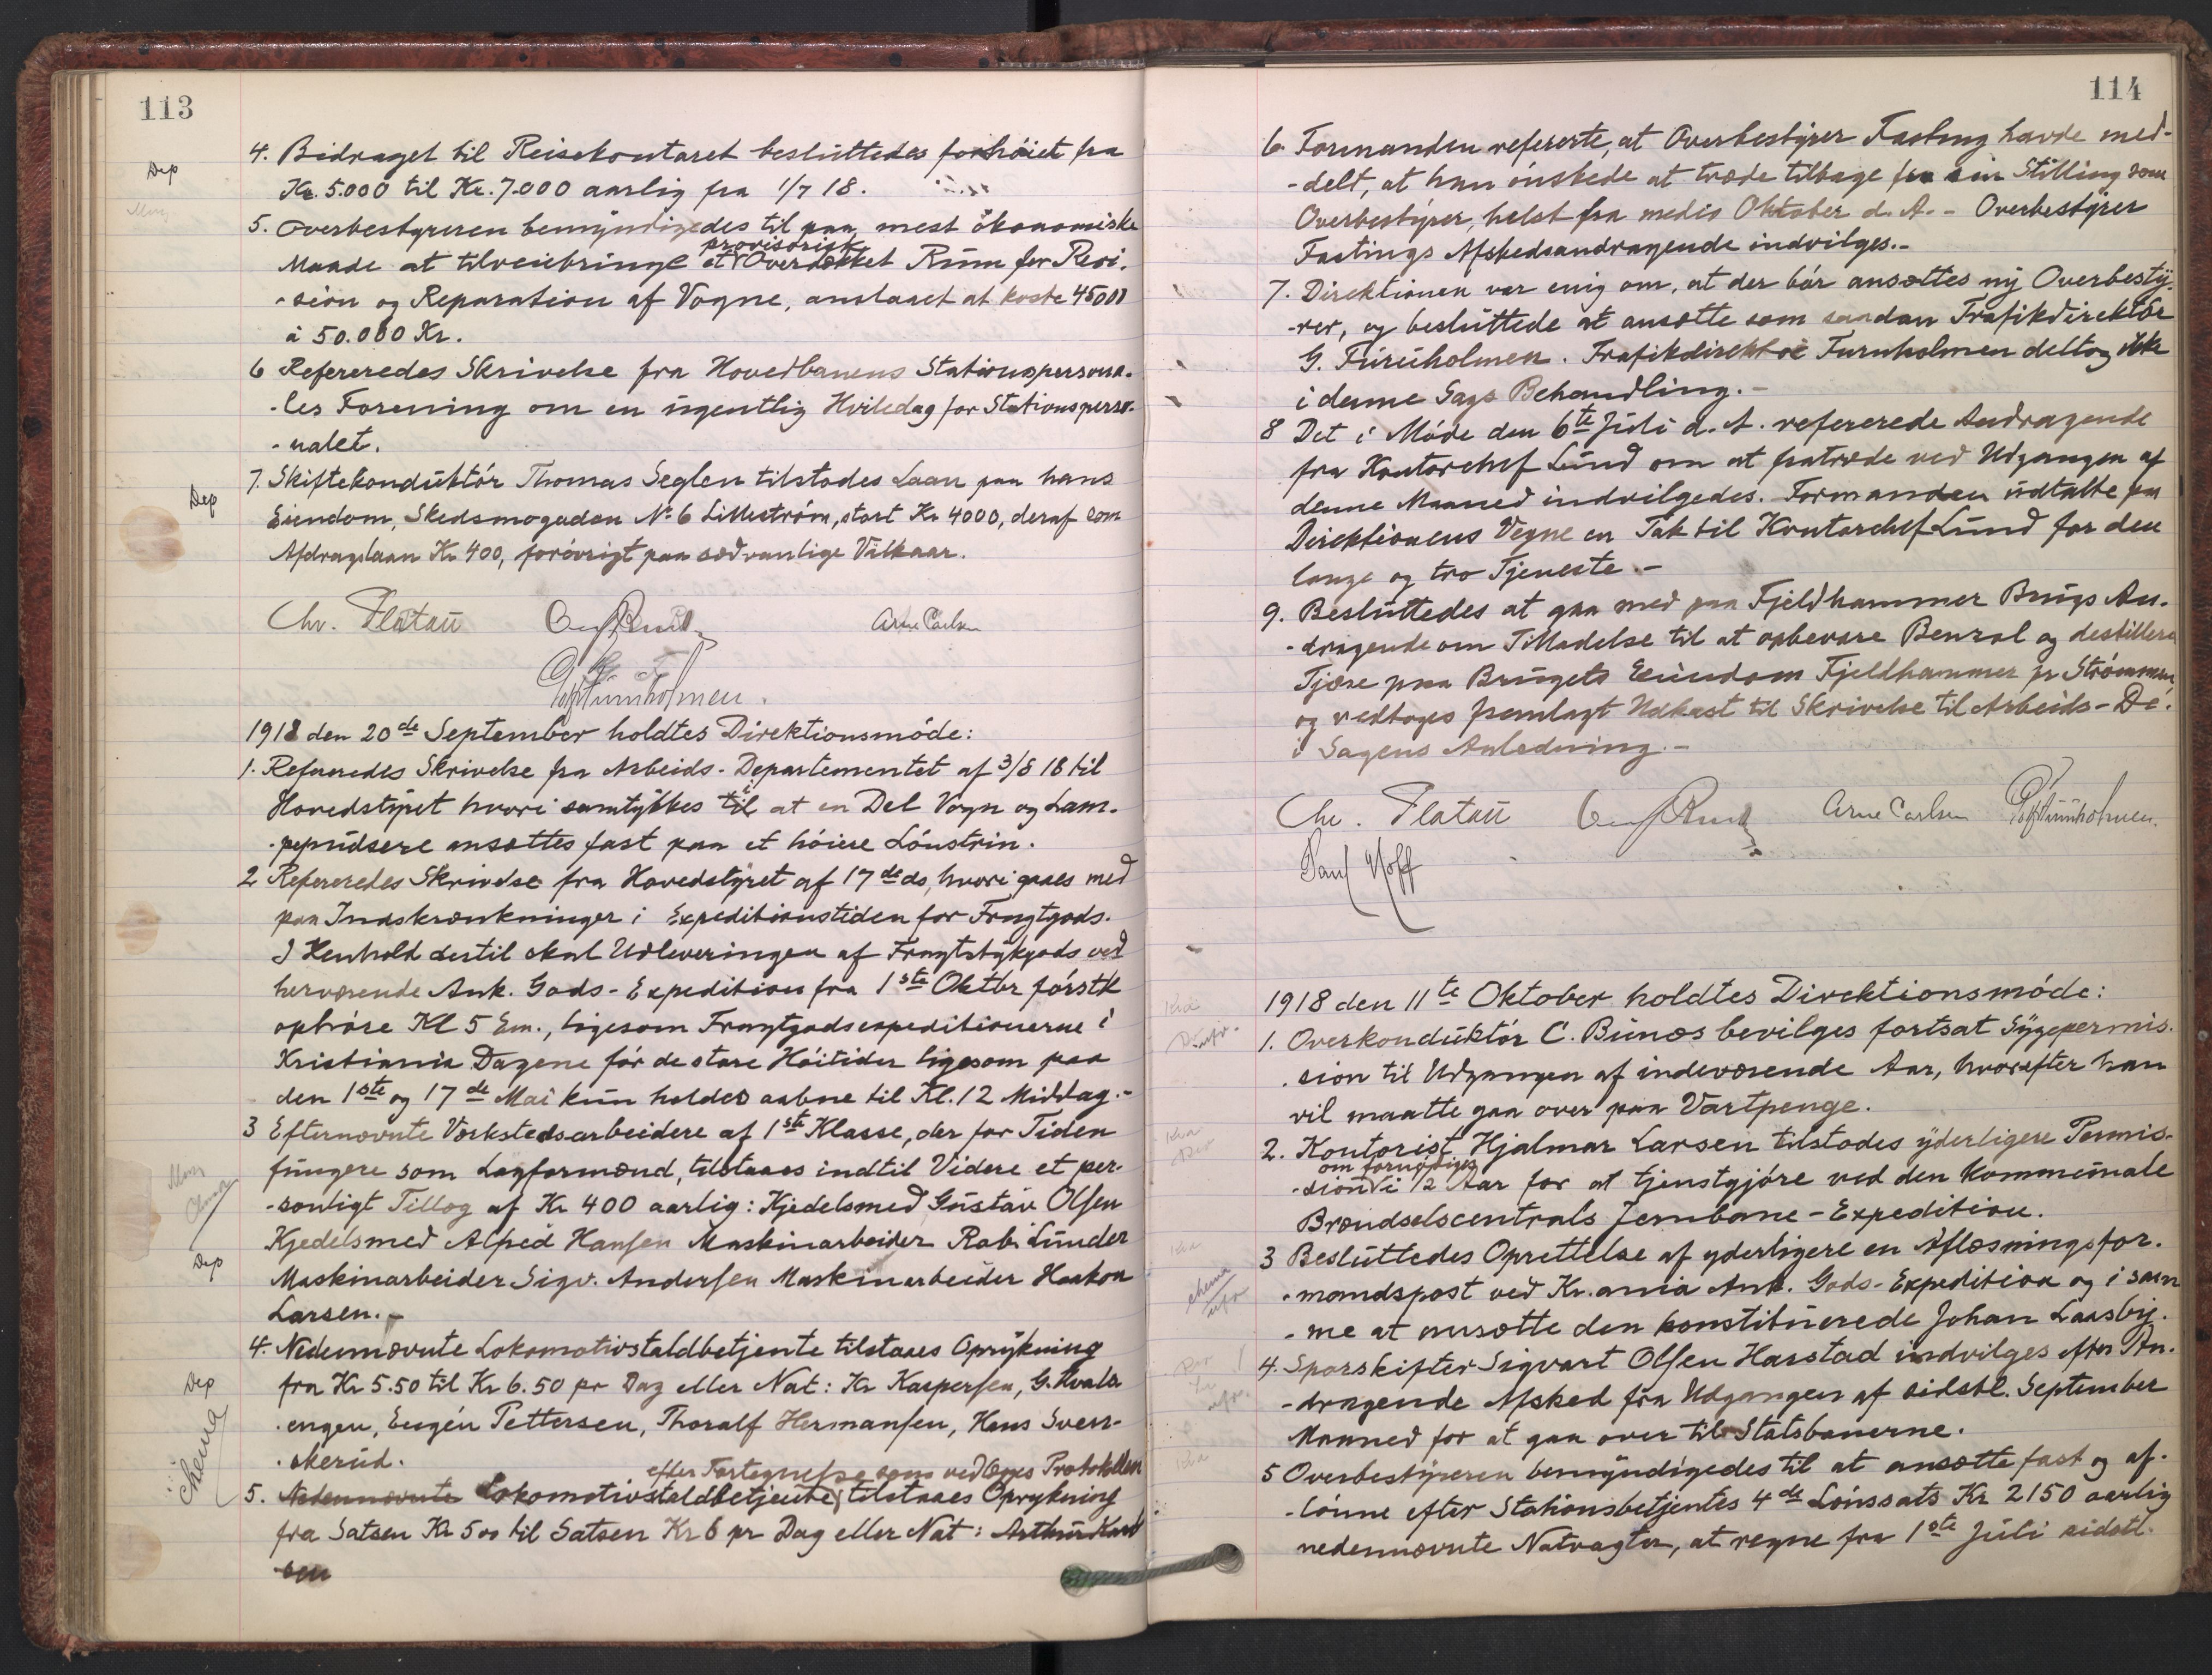 113
Dep
4. Bidraget til Reisekontoret besluttedes forhöiet fra
Kr. 5.000 til Kr. 7.000 aarlig fra 1/7 18.
5. Overbestyreren bemyndigedes til paa mest ökonomiske
provisorisk
Maade at tilveiebringe et Overdækket Rum for Revi-
-sion og Reparation af Vogne, anslaaet at koste 45000
à 50.000 Kr.
6 Refereredes Skrivelse fra Hovedbanens Stationspersona-
-les Forening om en ugentlig Hviledag for Stationsperso-
-nalet.
Dep
7. Skiftekonduktör Thomas Seglen tilstodes Laan paa hans
Eiendom, Skedsmogaden No 6 Lilleström, stort Kr 4000, deraf som
Afdragslaan Kr 400, forövrigt paa sædvanlige Vilkaar.
Chr. Platou Arne Carlsen
Furuholmen.
1918 den 20de September holdtes Direktionsmöde:
1. Refereredes Skrivelse fra Arbeids-Departementet af 3/8 18 til
Hovedstyret hvori samtykkes til at en Del Vogn og Lam-
-pepudsere ansættes fast paa et höiere Lönstrin.
2 Refereredes Skrivelse fra Hovedstyret af 17de ds, hvori gaaes med
paa Indskrænkninger i Expeditionstiden for Fragtgods.
I Henhold dertil skal Udleveringen af Fragtstykgods ved
herværende Ank. Gods-Expedition fra 1ste Oktbr förstk
ophöre Kl 5 Em., ligesom Fragtgodsexpeditionerne i
Kristiania Dagene för de store Höitider ligesom paa
den 1ste og 17de Mai kun holdes aabne til Kl. 12 Middag.-
3 Efternævnte Værkstedsarbeidere af 1ste Klasse, der for Tiden
fungere som Lagformænd, tilstaaes indtil Videre et per-
-sonligt Tillæg af Kr 400 aarlig: Kjedelsmed Gustav Olsen
Kjedelsmed Alfred Hansen Maskinarbeider Rob. Lunder
Dep
Maskinarbeider Sigv. Andersen Maskinarbeider Haakon
Larsen.-
4. Nedennævnte Lokomotivstaldbetjente tilstaaes Oprykning
Dep
fra Kr 5.50 til Kr 6.50 pr Dag eller Nat: Kr Kaspersen, G. Hvals-
-engen, Eugén Pettersen, Thoralf Hermansen, Hans Sven-
-skerud.
efter Fortegnelse som vedlægges Protokollen
5. Nedennævnte Lokomotivstaldbetjente tilstaaes Oprykning
fra Satsen Kr 5.00 til Satsen Kr 6 pr Dag eller Nat: Arthur Karl
sen
114
6 Formanden refererte, at Overbestyrer Fasting havde med-
-delt, at han önskede at træde tilbage fra sin Stilling som
Overbestyrer, helst fra medio Oktober d. A. - Overbestyrer
Fastings Afskedsandragende indvilges.-
7. Direktionen var enig om, at der bör ansættes ny Overbesty-
-rer, og besluttede at ansætte som saadan Trafikdirektör
G. Furuholmen. Trafikdirektör Furuholmen deltog ikke
i denne Sags Behandling.-
8 Det i Möde den 6te Juli d. A. refererede Andragende
fra Kontorchef Lund om at fratræde ved Udgangen af
denne Maaned indvilgedes. Formanden udtalte paa
Direktionens Vegne en Tak til Kontorchef Lund for den
lange og tro Tjeneste.-
9. Besluttedes at gaa med paa Fjeldhammer Brugs An-
-dragende om Tilladelse til at opbevare Benzol og destillere
Tjære paa Brugets Eiendom Fjeldhammer pr Strömmen,
og vedtoges fremlagt Udkast til Skrivelse til Arbeids-De.
i Sagens Anledning.-
Chr. Platou Arne Carlsen Furuholmen.
Paul Hoff
1918 den 11te Oktober holdtes Direktionsmöde:
1. Overkonduktör C. Bunæs bevilges fortsat Sygepermis-
-sion til Udgangen af indeværende Aar, hvorefter han
vil maatte gaa over paa Vartpenge.
2. Kontorist Hjalmar Larsen tilstodes yderligere Permis-
om fornödiges
-sion i 1/2 Aar for at tjenstgjöre ved den Kommunale
Brændselscentrals Jernbane-Expedition.
3 Besluttedes Oprettelse af yderligere en Aflæsningsfor-
-mandspost ved Kr.ania Ank. Gods-Expedition og i sam
-me at ansætte den konstituerede Johan Laasby.
4. Sporskifter Sigvart Olsen Harstad indvilges efter An-
-dragende Afsked fra Udgangen af sidstl. September
Maaned for at gaa over til Statsbanerne.
5 Overbestyreren bemyndigedes til at ansætte fast og af-
-lönne efter Stationsbetjentes 4de Lönssats Kr 2150 aarlig
nedennævnte Natvagter, at regne fra 1ste Juli sidstl.